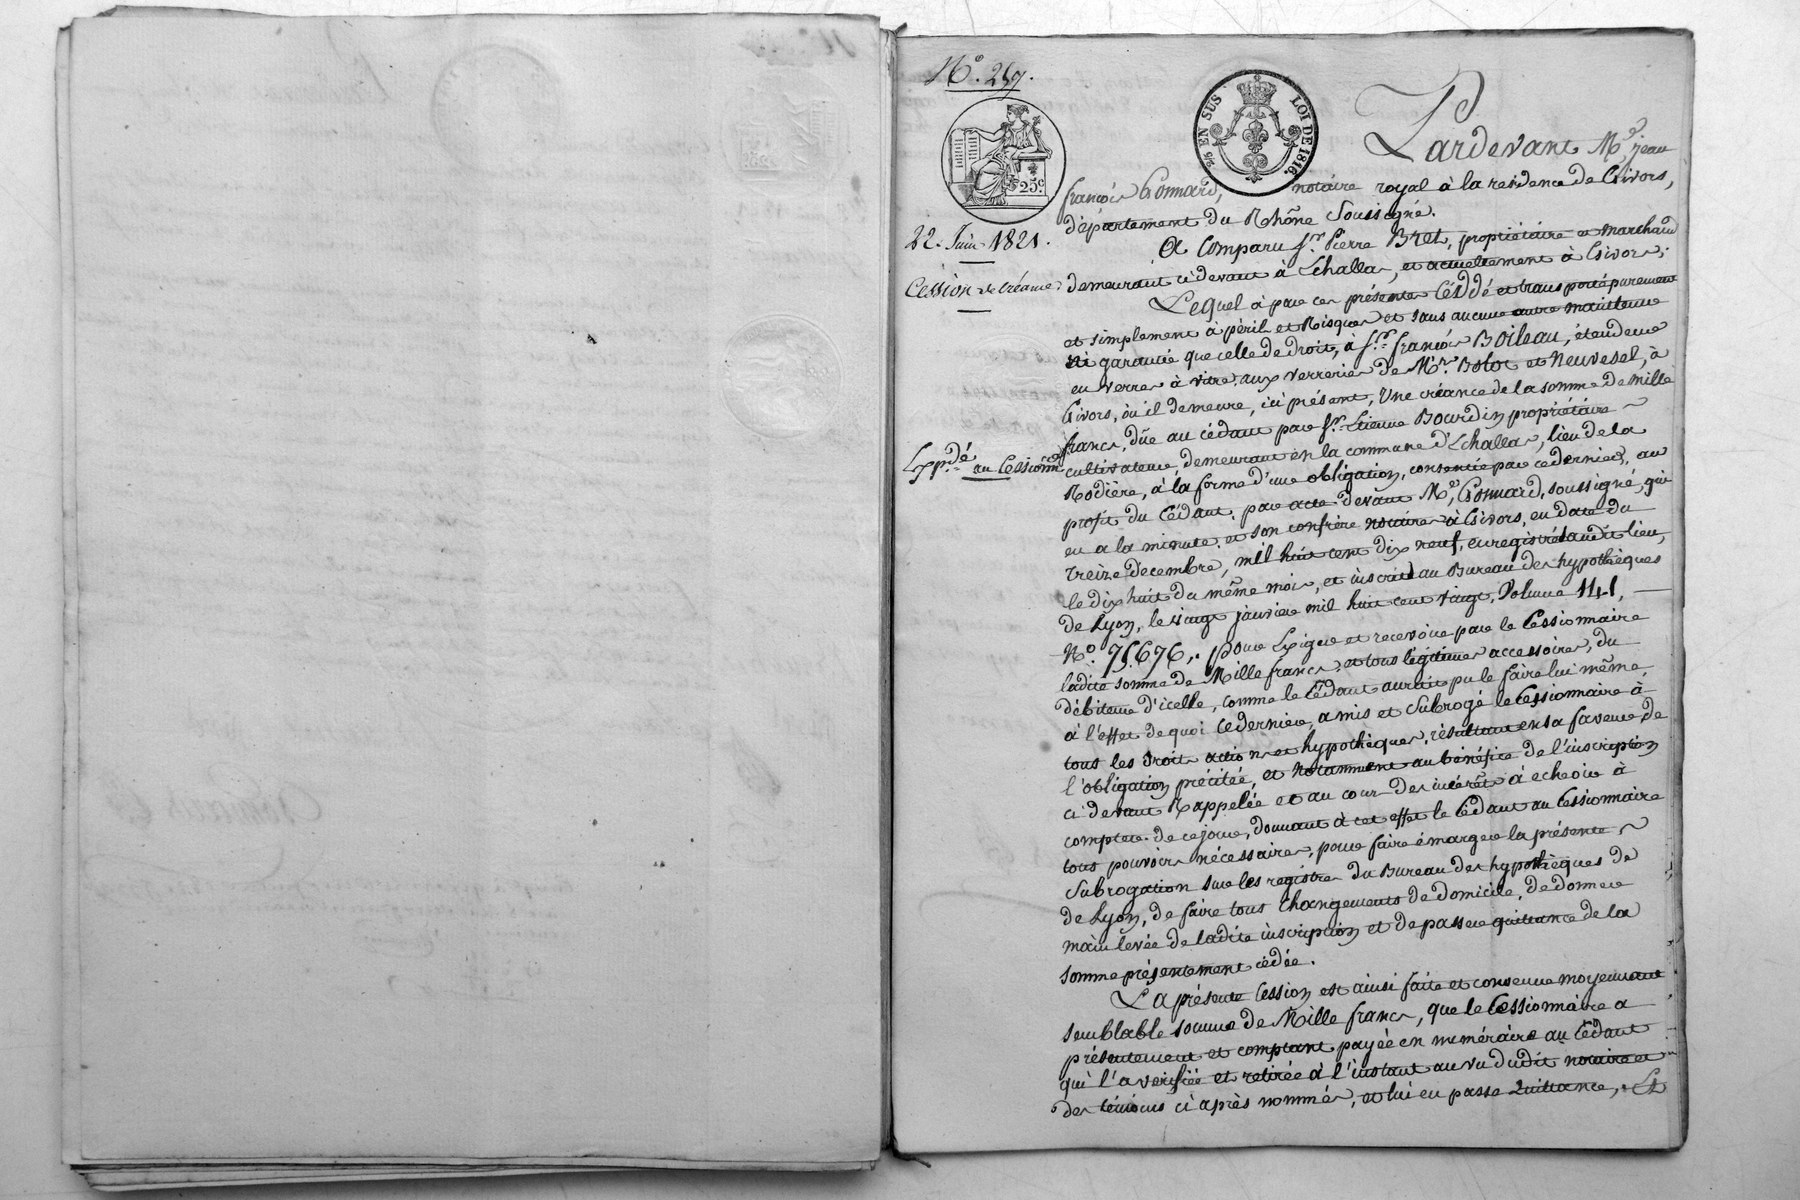 N.o 257.
25 c.
5/6 EN SUS LOI DE 1816.
22. Juin 1821.
Cession de Créance
Exp.dé au Cessionre
Pardevant M.e jean
françois Gonnard, notaire royal à la residence de Givors,
département du Rhône soussigné.
A Comparu s.r Pierre Bret, propriétaire et marchand
demeurant cidevant à Echallas, et actuellement à Givors;
Lequel à par ces présentes Céddé et transporté purement
et simplement à péril et Risques et sans aucune autre maintenue
ni garantie que celle de droit, à s.r françois Boileau, étendeur
en verres à vitre aux verreries de M.rs Bolot et Neuvesel, à
Givors, où il demeure, ici présent, Une créance de la somme de mille
francs, düe au cédant par s.r Etienne Bourdin propriétaire
cultivateur, demeurant en la commune d'Echallas, lieu de la
Rodière, à la forme d'une obligation, consentie par ce dernier, au
profit du Cédant, par acte devant M.e Gonnard, soussigné, qui
en a la minute, et son confrère notaires à Givors, en date du
treize decembre, mil huit cent dix neuf, enregistrée audit lieu,
le dix huit du même mois, et inscrite au Bureau des hypothèques
de Lyon, le vingt janvier mil huit cent vingt, Volume 141,
N.o 75.676,. pour Exiger et recevoir par le Cessionnaire
ladite somme de Mille francs et tous légitimes accessoires, du
débiteur d'icelle, comme le Cédant aurait pu le faire lui même,
à l'effet de quoi ce dernier, a mis et subrogé le Cessionnaire à
tous les droits actions et hypothèques, résultant en sa faveur, de
l'obligation précitée, et notamment au bénéfice de l'inscription
ci devant Rappelée et au cours des intérêts à echoir à
compter de ce jour, donnant à cet effet le Cédant au Cessionnaire
tous pouvoirs nécessaires, pour faire émarger la présente
Subrogation sur les registres du Bureau des hypothèques de
de Lyon, de faire tous Changements de domicile, de donner
main levée de ladite inscription et de passer quittance de la
somme présentement cédée.
La présente Cession est ainsi faite et convenue moyennant
semblable somme de Mille francs, que le Cessionnaire a
présentement et comptant payée en numéraire au Cédant
qui l'a verifiée et retirée à l'instant au vu dudit notaire et
des témoins ci après nommés, et lui en passe Quittance,. Et